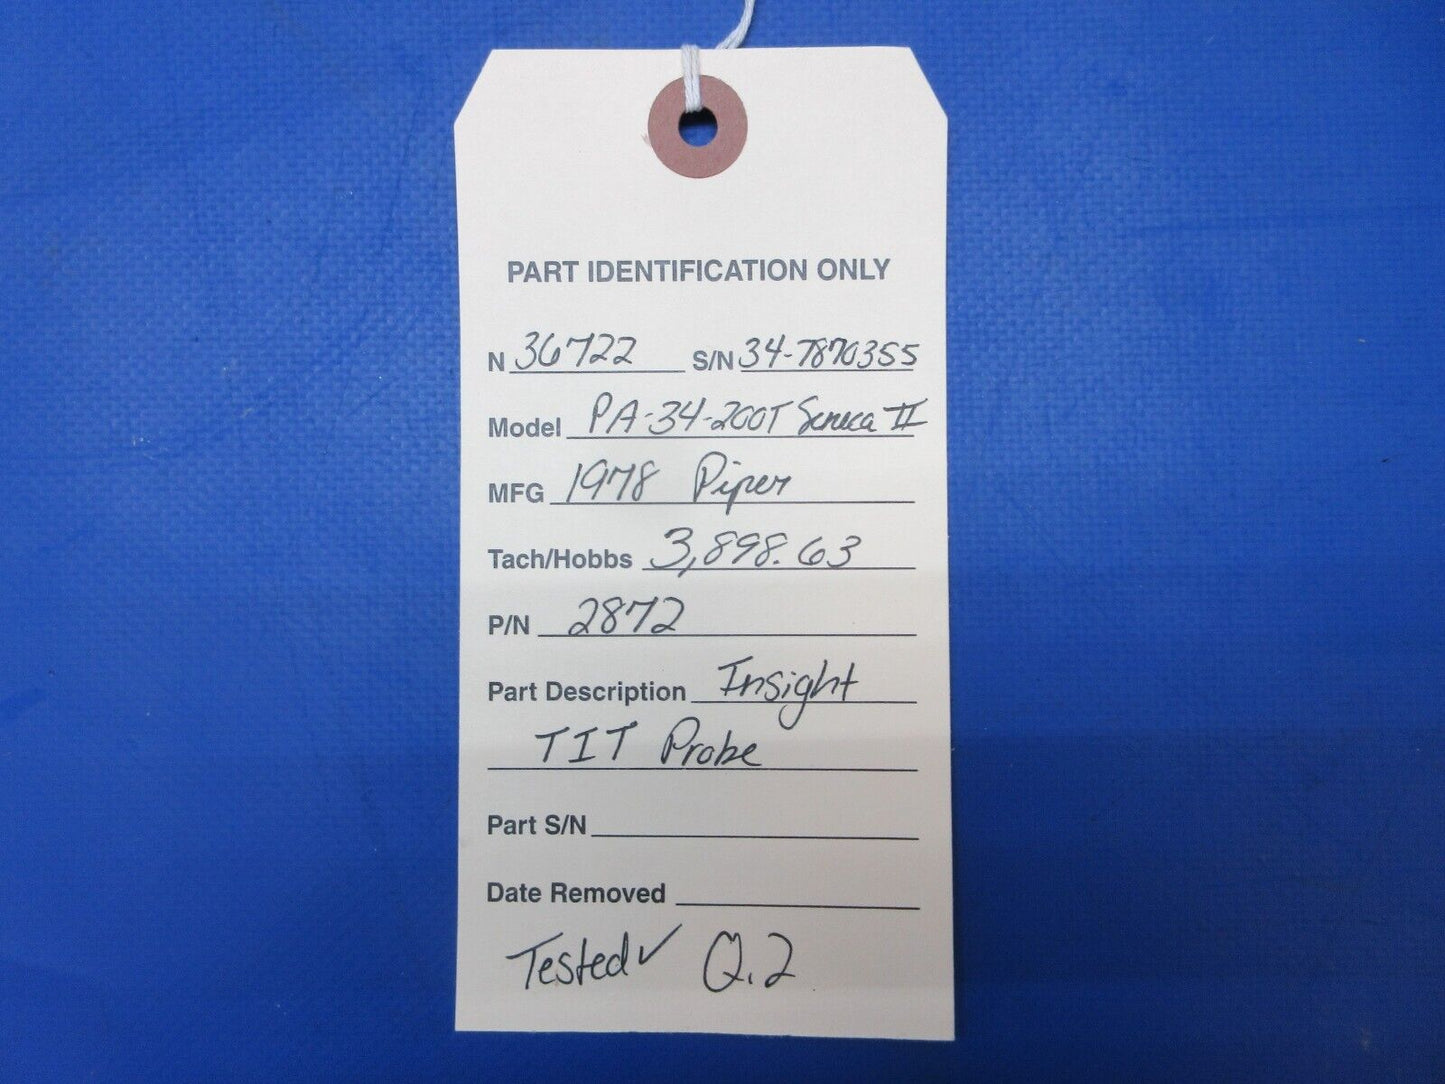 PART IDENTIFICATION ONLY
N 36722 S/N 34-7870355
Model PA-34-200T Seneca II
MFG 1978 Piper
Tach/Hobbs 3,898.63
P/N 2872
Part Description Insight
TIT Probe
Part S/N
Date Removed
Tested✓ Q.2